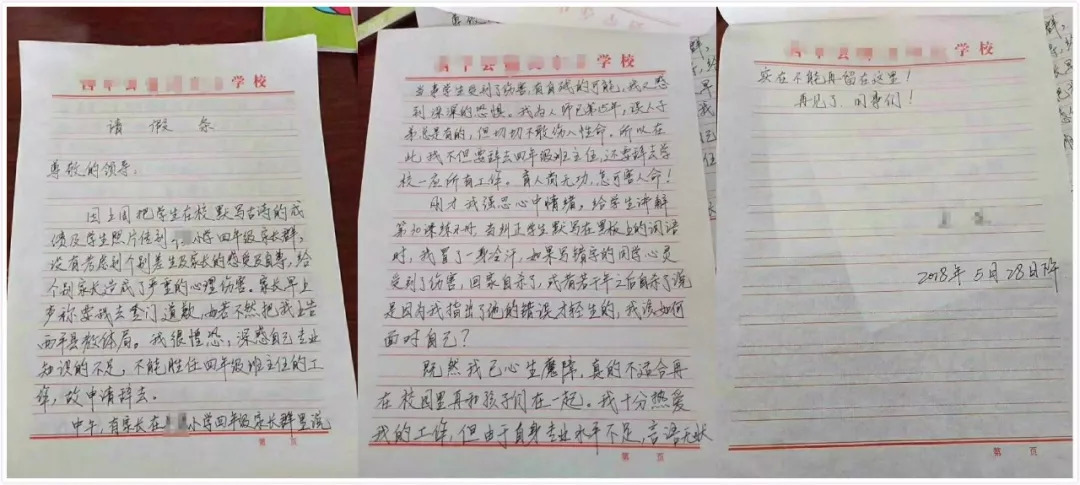 学校
请假条
尊敬的领导:
因上周把学生在校默写古诗的成
绩及学生照片传到小学四年级家长群,
没有考虑到个别差生及家长的感受及自尊,给
个别家长造成了严重的心理伤害。家长早上
声称要我去登门道歉,如若不然把我上告
西平县教体局。我很惶恐,深感自己专业
知识的不足,不能胜任四年级班主任的工
作,故申请辞去。
中午,有家长在小学四年级家长群里说
第 页
学校
当事学生受到了伤害,有自残的可能,我又感
到深深的恐惧。我为人师已第近年,误人子
弟总是有的,但切切不敢伤人性命。所以在
此我不但要辞去四年级班主任,还要辞去学
校一应所有工作。育人尚无功,怎可害人命!
刚才我强忍心中情绪,给学生讲解
第30课练不时,在纠正学生默写在黑板上的词语
时,我冒了一身冷汗,如果写错字的同学心灵
受到了伤害,回家自杀了,或者若干年之后自杀了说
是因为我指出了他的错误才轻生的,我该如何
面对自己?
既然我已心生魔障,真的不适合再
在校园里再和孩子们在一起。我十分热爱
我的工作,但由于自身专业水平不足,言语无状
第 页
学校
实在不能再留在这里!
再见了,同事们!
2018年5月28日
第 页